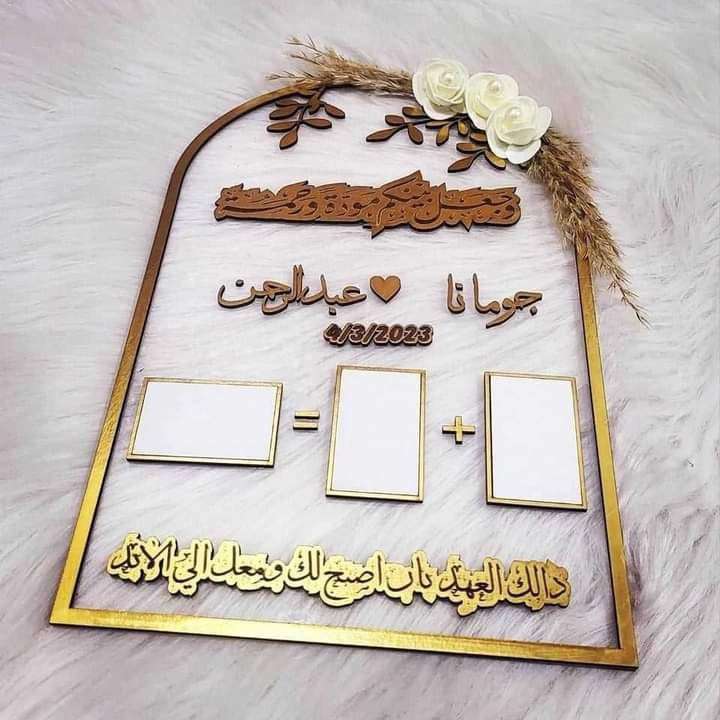 وجعل بينكم مودة ورحمة
جومانا ♥ عبدالرحمن
4/3/2023
+ =
ذالك العهد بان اصبح لك ومعك الي الابد